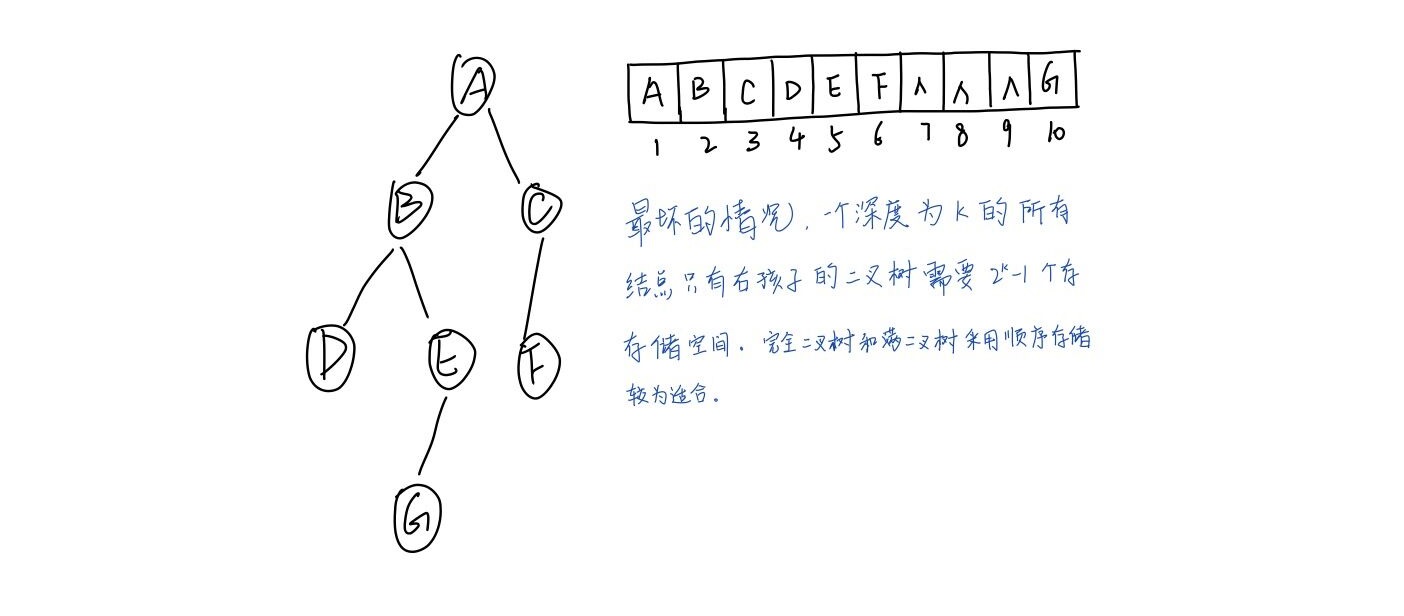 A
B C
D E F
G
A B C D E F ∧ ∧ ∧ G
1 2 3 4 5 6 7 8 9 10
最坏的情况, 一个深度为 k 的所有
结点只有右孩子的二叉树需要 2ᵏ-1 个存
存储空间. 完全二叉树和满二叉树采用顺序存储
较为适合。